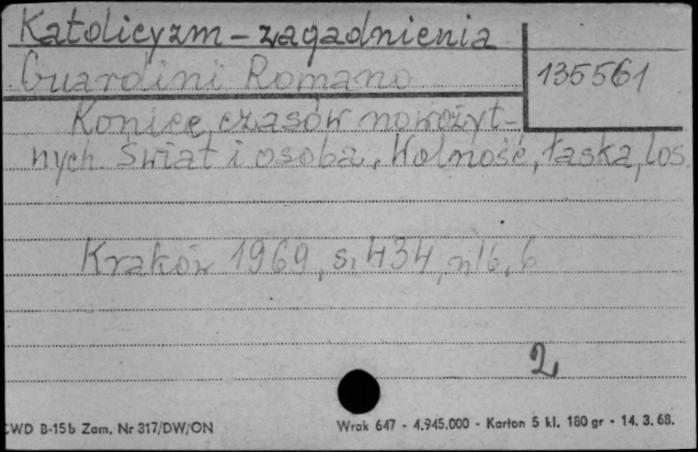 Katolicyzm - zagadnienia
Guardini Romano
135561
Koniec czasów nowożyt-
nych. Świat i osoba. Wolność, łaska, los
Kraków 1969, s. 434,
2
WD B-15b Zam. Nr 317/DW/ON
Wrak 647 - 4.945.000 - Karton 5 kl. 180 gr - 14. 3. 68.